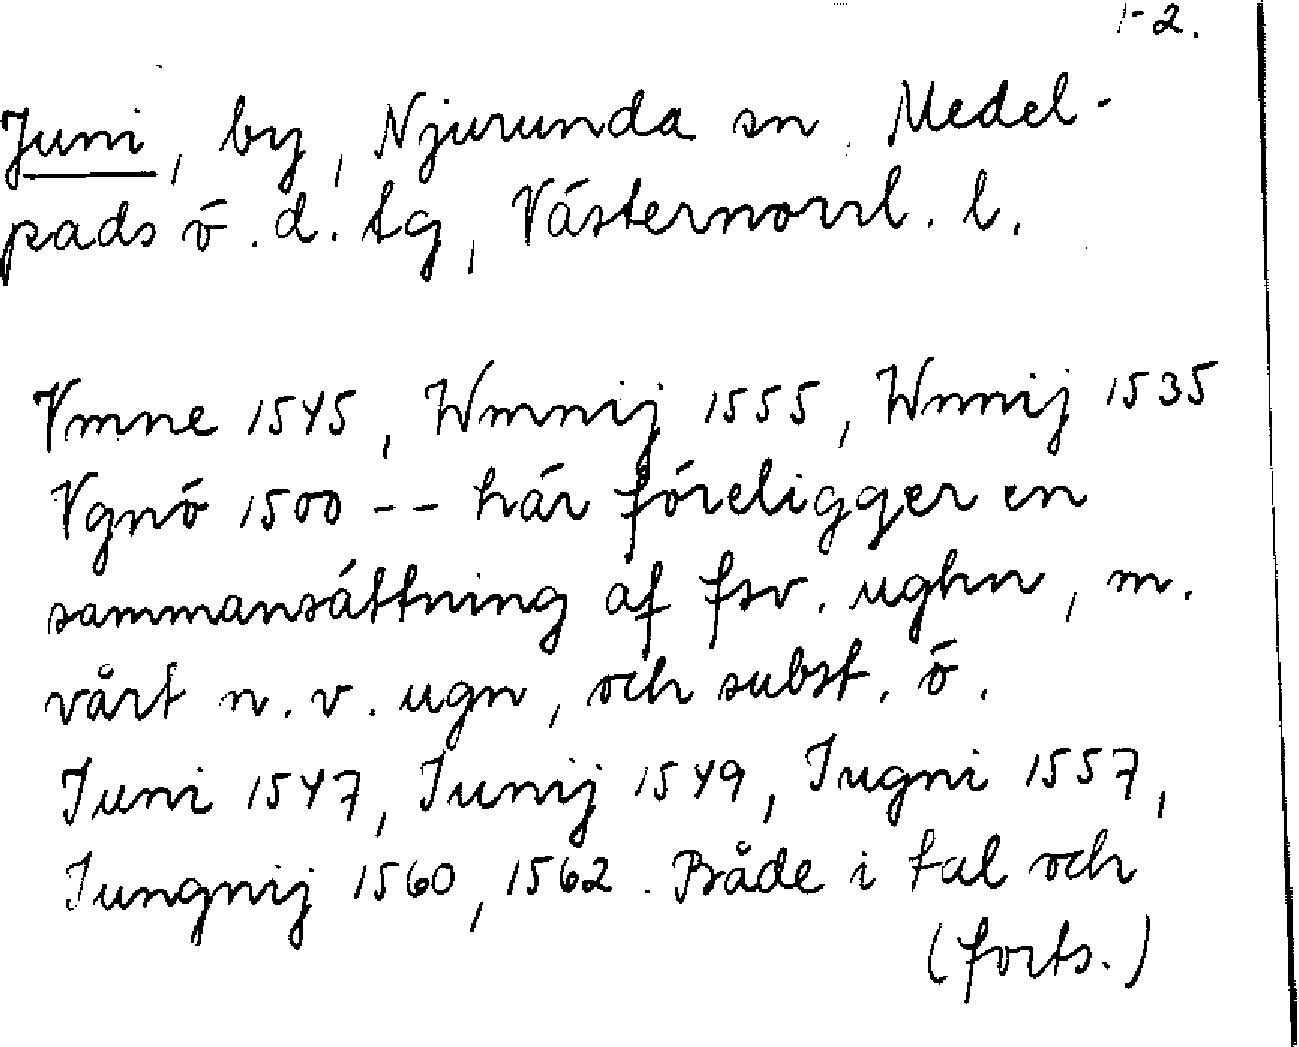 1-2.
Juni, by, Njurunda sn. Medel-
pads ö.d. tg, Västernorrl. l.
Vmne 1545, Wmnij 1555, Wnnij 1535
Vgnö 1500 -- här föreligger en
sammansättning af fsv. ughn, m.
vårt n.v. ugn, och subst. ö.
Iuni 1547, Iunij 1549, Iugni 1557,
Iungnij 1560, 1562. Både i tal och
(forts.)